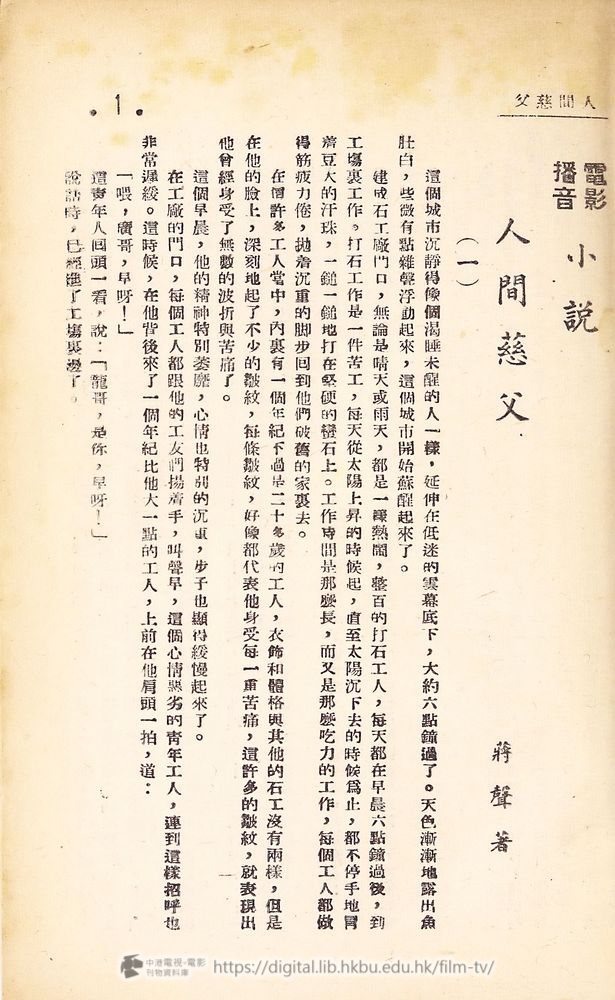 父慈間人
電影
播音
小說
人間慈父
蔣聲著
(一)
這個城市沉靜得像個渴睡未醒的人一樣，延伸在低迷的雲幕底下，大約六點鐘過了。天色漸漸地露出魚
肚白，些微有點雜聲浮動起來，這個城市開始蘇醒起來了。
建成石工廠門口，無論是晴天或雨天，都是一樣熱鬧，整百的打石工人，每天都在早晨六點鐘過後，到
工塲裏工作。打石工作是一件苦工，每天從太陽上昇的時候起，直至太陽沉下去的時候爲止，都不停手地冒
着豆大的汗珠，一鎚一鎚地打在堅硬的蠻石上。工作時間是那麽長，而又是那麽吃力的工作，每個工人都做
得筋疲力倦，拋着沉重的脚步回到他們破舊的家裏去。
在這許多工人當中，內裏有一個年紀不過是二十多歲的工人，衣飾和體格與其他的石工沒有兩樣，但是
在他的臉上，深刻地起了不少的皺紋，每條皺紋，好像都代表他身受每一重苦痛，這許多的皺紋，就表現出
他曾經身受了無數的波折與苦痛了。
這個早晨，他的精神特別萎靡，心情也特別的沉重，步子也顯得緩慢起來了。
在工廠的門口，每個工人都跟他的工友們揚着手，叫聲早，這個心情惡劣的青年工人，連到這樣招呼也
非常遲緩。這時候，在他背後來了一個年紀比他大一點的工人，上前在他肩頭一拍，道：
「喂，廣哥，早呀！」
這青年人回頭一看，說：「龍哥，是你，早呀！」
說話時，已經進了工塲裏邊了。
．1．
中港電視・電影
刊物資料庫
https://digital.lib.hkbu.edu.hk/film-tv/